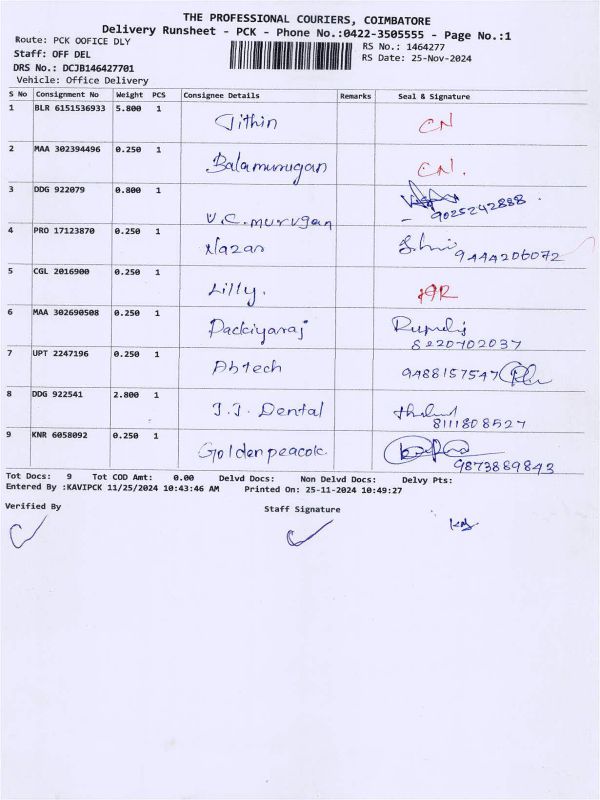 THE PROFESSIONAL COURIERS, COIMBATORE
Delivery Runsheet - PCK - Phone No.:0422-3505555 - Page No.:1
Route: PCK OOFICE DLY
RS No.: 1464277
Staff: OFF DEL
RS Date: 25-Nov-2024
DRS No.: DCJB146427701
Vehicle: Office Delivery
S No Consignment No Weight PCS Consignee Details Remarks Seal & Signature
1 BLR 6151536933 5.800 1 Jithin CN
2 MAA 302394496 0.250 1 Balamurugan CN.
3 DDG 922079 0.800 1 V.C. murugan 9025242888
4 PRO 17123870 0.250 1 Nazar 9444206072
5 CGL 2016900 0.250 1 Lilly.
6 MAA 302690508 0.250 1 Packiyaraj 8220702037
7 UPT 2247196 0.250 1 Abtech 9488157547
8 DDG 922541 2.800 1 J.J. Dental 8111808527
9 KNR 6058092 0.250 1 Goldenpeacock 9873889843
Tot Docs: 9 Tot COD Amt: 0.00 Delvd Docs: Non Delvd Docs: Delvy Pts:
Entered By :KAVIPCK 11/25/2024 10:43:46 AM Printed On: 25-11-2024 10:49:27
Verified By Staff Signature